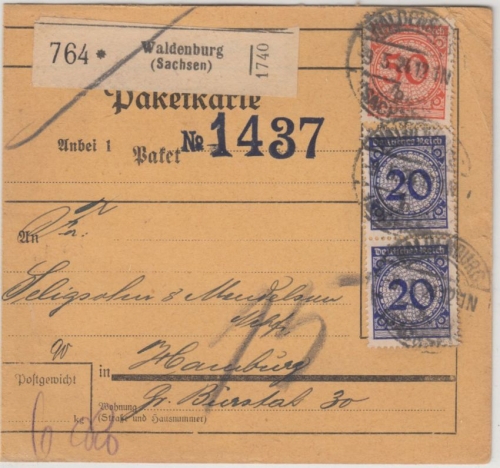 764 * Waldenburg
(Sachsen)
1740
Paketkarte
Anbei 1 Paket № 1437
50
Deutsches Reich
20
Deutsches Reich
20
An
Seligsohn & Mendelson
in Hamburg
Gr. Burstah 30
Postgewicht
kg
Wohnung
(Straße und Hausnummer)